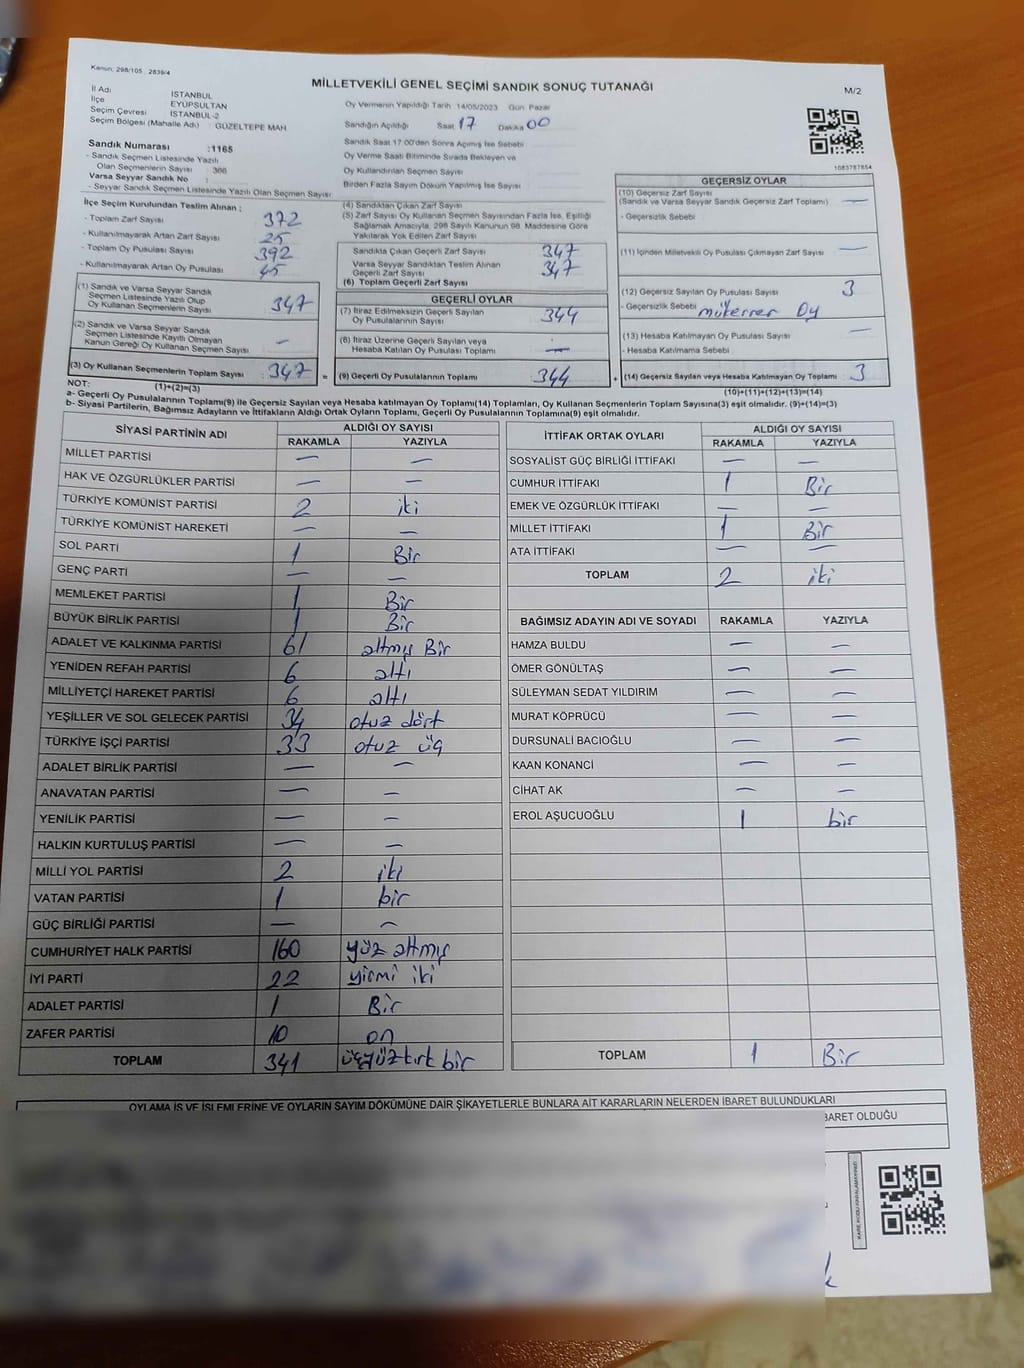 Kanun: 298/105 2839/4
MİLLETVEKİLİ GENEL SEÇİMİ SANDIK SONUÇ TUTANAĞI
M/2
İl Adı İSTANBUL
İlçe EYÜPSULTAN
Seçim Çevresi İSTANBUL-2
Seçim Bölgesi (Mahalle Adı) : GÜZELTEPE MAH.
Oy Vermenin Yapıldığı Tarih 14/05/2023 Gün Pazar
Sandığın Açıldığı Saat 17 Dakika 00
Sandık Saat 17:00'den Sonra Açılmış İse Sebebi
Oy Verme Saati Bitiminde Sırada Bekleyen ve
Oy Kullandırılan Seçmen Sayısı
Birden Fazla Sayım Döküm Yapılmış İse Sayısı
1083787854
Sandık Numarası :1165
- Sandık Seçmen Listesinde Yazılı
Olan Seçmenlerin Sayısı : 366
Varsa Seyyar Sandık No :
- Seyyar Sandık Seçmen Listesinde Yazılı Olan Seçmen Sayısı
İlçe Seçim Kurulundan Teslim Alınan ;
- Toplam Zarf Sayısı 372
- Kullanılmayarak Artan Zarf Sayısı 25
- Toplam Oy Pusulası Sayısı 392
- Kullanılmayarak Artan Oy Pusulası 45
(1) Sandık ve Varsa Seyyar Sandık
Seçmen Listesinde Yazılı Olup
Oy Kullanan Seçmenlerin Sayısı 347
(2) Sandık ve Varsa Seyyar Sandık
Seçmen Listesinde Kayıtlı Olmayan
Kanun Gereği Oy Kullanan Seçmen Sayısı —
(3) Oy Kullanan Seçmenlerin Toplam Sayısı : 347
(4) Sandıktan Çıkan Zarf Sayısı
(5) Zarf Sayısı Oy Kullanan Seçmen Sayısından Fazla İse, Eşitliği
Sağlamak Amacıyla, 298 Sayılı Kanunun 98. Maddesine Göre
Yakılarak Yok Edilen Zarf Sayısı
Sandıkta Çıkan Geçerli Zarf Sayısı 347
Varsa Seyyar Sandıktan Teslim Alınan
Geçerli Zarf Sayısı 347
(6) Toplam Geçerli Zarf Sayısı
GEÇERLİ OYLAR
(7) İtiraz Edilmeksizin Geçerli Sayılan
Oy Pusulalarının Sayısı 344
(8) İtiraz Üzerine Geçerli Sayılan veya
Hesaba Katılan Oy Pusulası Toplamı —
= (9) Geçerli Oy Pusulalarının Toplamı 344
GEÇERSİZ OYLAR
(10) Geçersiz Zarf Sayısı
(Sandık ve Varsa Seyyar Sandık Geçersiz Zarf Toplamı) —
- Geçersizlik Sebebi
(11) İçinden Milletvekili Oy Pusulası Çıkmayan Zarf Sayısı —
(12) Geçersiz Sayılan Oy Pusulası Sayısı 3
- Geçersizlik Sebebi mükerrer Oy
(13) Hesaba Katılmayan Oy Pusulası Sayısı —
- Hesaba Katılmama Sebebi
+ (14) Geçersiz Sayılan veya Hesaba Katılmayan Oy Toplamı 3
NOT: (1)+(2)=(3)
(10)+(11)+(12)+(13)=(14)
a- Geçerli Oy Pusulalarının Toplamı(9) ile Geçersiz Sayılan veya Hesaba katılmayan Oy Toplamı(14) Toplamları, Oy Kullanan Seçmenlerin Toplam Sayısına(3) eşit olmalıdır. (9)+(14)=(3)
b- Siyasi Partilerin, Bağımsız Adayların ve İttifakların Aldığı Ortak Oyların Toplamı, Geçerli Oy Pusulalarının Toplamına(9) eşit olmalıdır.
SİYASİ PARTİNİN ADI ALDIĞI OY SAYISI
RAKAMLA YAZIYLA
MİLLET PARTİSİ — —
HAK VE ÖZGÜRLÜKLER PARTİSİ — —
TÜRKİYE KOMÜNİST PARTİSİ 2 iki
TÜRKİYE KOMÜNİST HAREKETİ — —
SOL PARTİ 1 Bir
GENÇ PARTİ — —
MEMLEKET PARTİSİ 1 Bir
BÜYÜK BİRLİK PARTİSİ 1 Bir
ADALET VE KALKINMA PARTİSİ 61 altmış Bir
YENİDEN REFAH PARTİSİ 6 altı
MİLLİYETÇİ HAREKET PARTİSİ 6 altı
YEŞİLLER VE SOL GELECEK PARTİSİ 34 otuz dört
TÜRKİYE İŞÇİ PARTİSİ 33 otuz üç
ADALET BİRLİK PARTİSİ — —
ANAVATAN PARTİSİ — —
YENİLİK PARTİSİ — —
HALKIN KURTULUŞ PARTİSİ — —
MİLLİ YOL PARTİSİ 2 iki
VATAN PARTİSİ 1 bir
GÜÇ BİRLİĞİ PARTİSİ — —
CUMHURİYET HALK PARTİSİ 160 yüz altmış
İYİ PARTİ 22 yirmi iki
ADALET PARTİSİ 1 Bir
ZAFER PARTİSİ 10 on
TOPLAM 341 üçyüzkırk bir
İTTİFAK ORTAK OYLARI ALDIĞI OY SAYISI
RAKAMLA YAZIYLA
SOSYALİST GÜÇ BİRLİĞİ İTTİFAKI — —
CUMHUR İTTİFAKI 1 Bir
EMEK VE ÖZGÜRLÜK İTTİFAKI — —
MİLLET İTTİFAKI 1 Bir
ATA İTTİFAKI — —
TOPLAM 2 iki
BAĞIMSIZ ADAYIN ADI VE SOYADI RAKAMLA YAZIYLA
HAMZA BULDU — —
ÖMER GÖNÜLTAŞ — —
SÜLEYMAN SEDAT YILDIRIM — —
MURAT KÖPRÜCÜ — —
DURSUNALİ BACIOĞLU — —
KAAN KONANCİ — —
CİHAT AK — —
EROL AŞUCUOĞLU 1 bir
TOPLAM 1 Bir
OYLAMA İŞ VE İŞLEMLERİNE VE OYLARIN SAYIM DÖKÜMÜNE DAİR ŞİKAYETLERLE BUNLARA AİT KARARLARIN NELERDEN İBARET BULUNDUKLARI
BARET OLDUĞU
KARE KODU KARALAMAYINIZ!